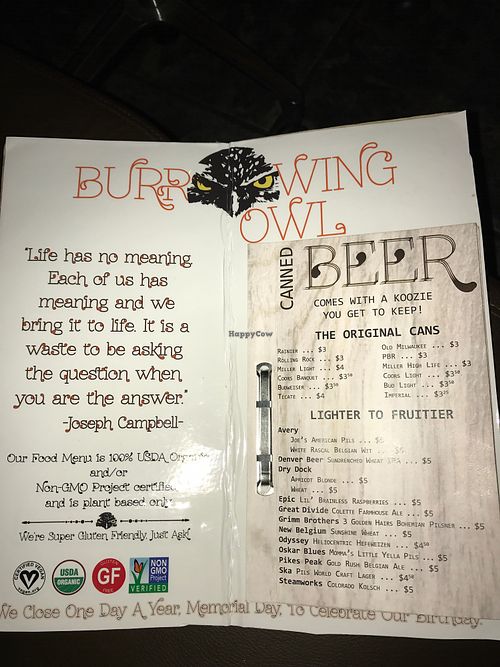 BURROWING
OWL
"Life has no meaning.
Each of us has
meaning and we
bring it to life. It is a
waste to be asking
the question when
you are the answer."
-Joseph Campbell-
Our Food Menu is 100% USDA Organic
and/or
Non-GMO Project certified
and is plant based only
We're Super Gluten Friendly, Just Ask
CERTIFIED VEGAN
vegan.org
USDA
ORGANIC
GLUTEN
GF
FREE
NON
GMO
Project
VERIFIED
We Close One Day A Year, Memorial Day, To Celebrate Our Birthday.
HappyCow
CANNED
BEER
COMES WITH A KOOZIE
YOU GET TO KEEP!
THE ORIGINAL CANS
Rainier ... $3
Rolling Rock ... $3
Miller Light ... $4
Coors Banquet ... $3⁵⁰
Budweiser ... $3⁵⁰
Tecate ... $4
Old Milwaukee ... $3
PBR ... $3
Miller High Life ... $3
Coors Light ... $3⁵⁰
Bud Light ... $3⁵⁰
Imperial ... $3²⁵
LIGHTER TO FRUITIER
Avery
Joe's American Pils ... $5
White Rascal Belgian Wit ... $5
Denver Beer Sundrenched Wheat IPA ... $5
Dry Dock
Apricot Blonde ... $5
Wheat ... $5
Epic Lil' Brainless Raspberries ... $5
Great Divide Colette Farmhouse Ale ... $5
Grimm Brothers 3 Golden Hairs Bohemian Pilsner ... $5
New Belgium Sunshine Wheat ... $5
Odyssey Heliocentric Hefeweizen ... $4⁵⁰
Oskar Blues Momma's Little Yella Pils ... $5
Pikes Peak Gold Rush Belgian Ale ... $5
Ska Pils World Craft Lager ... $4⁵⁰
Steamworks Colorado Kolsch ... $5